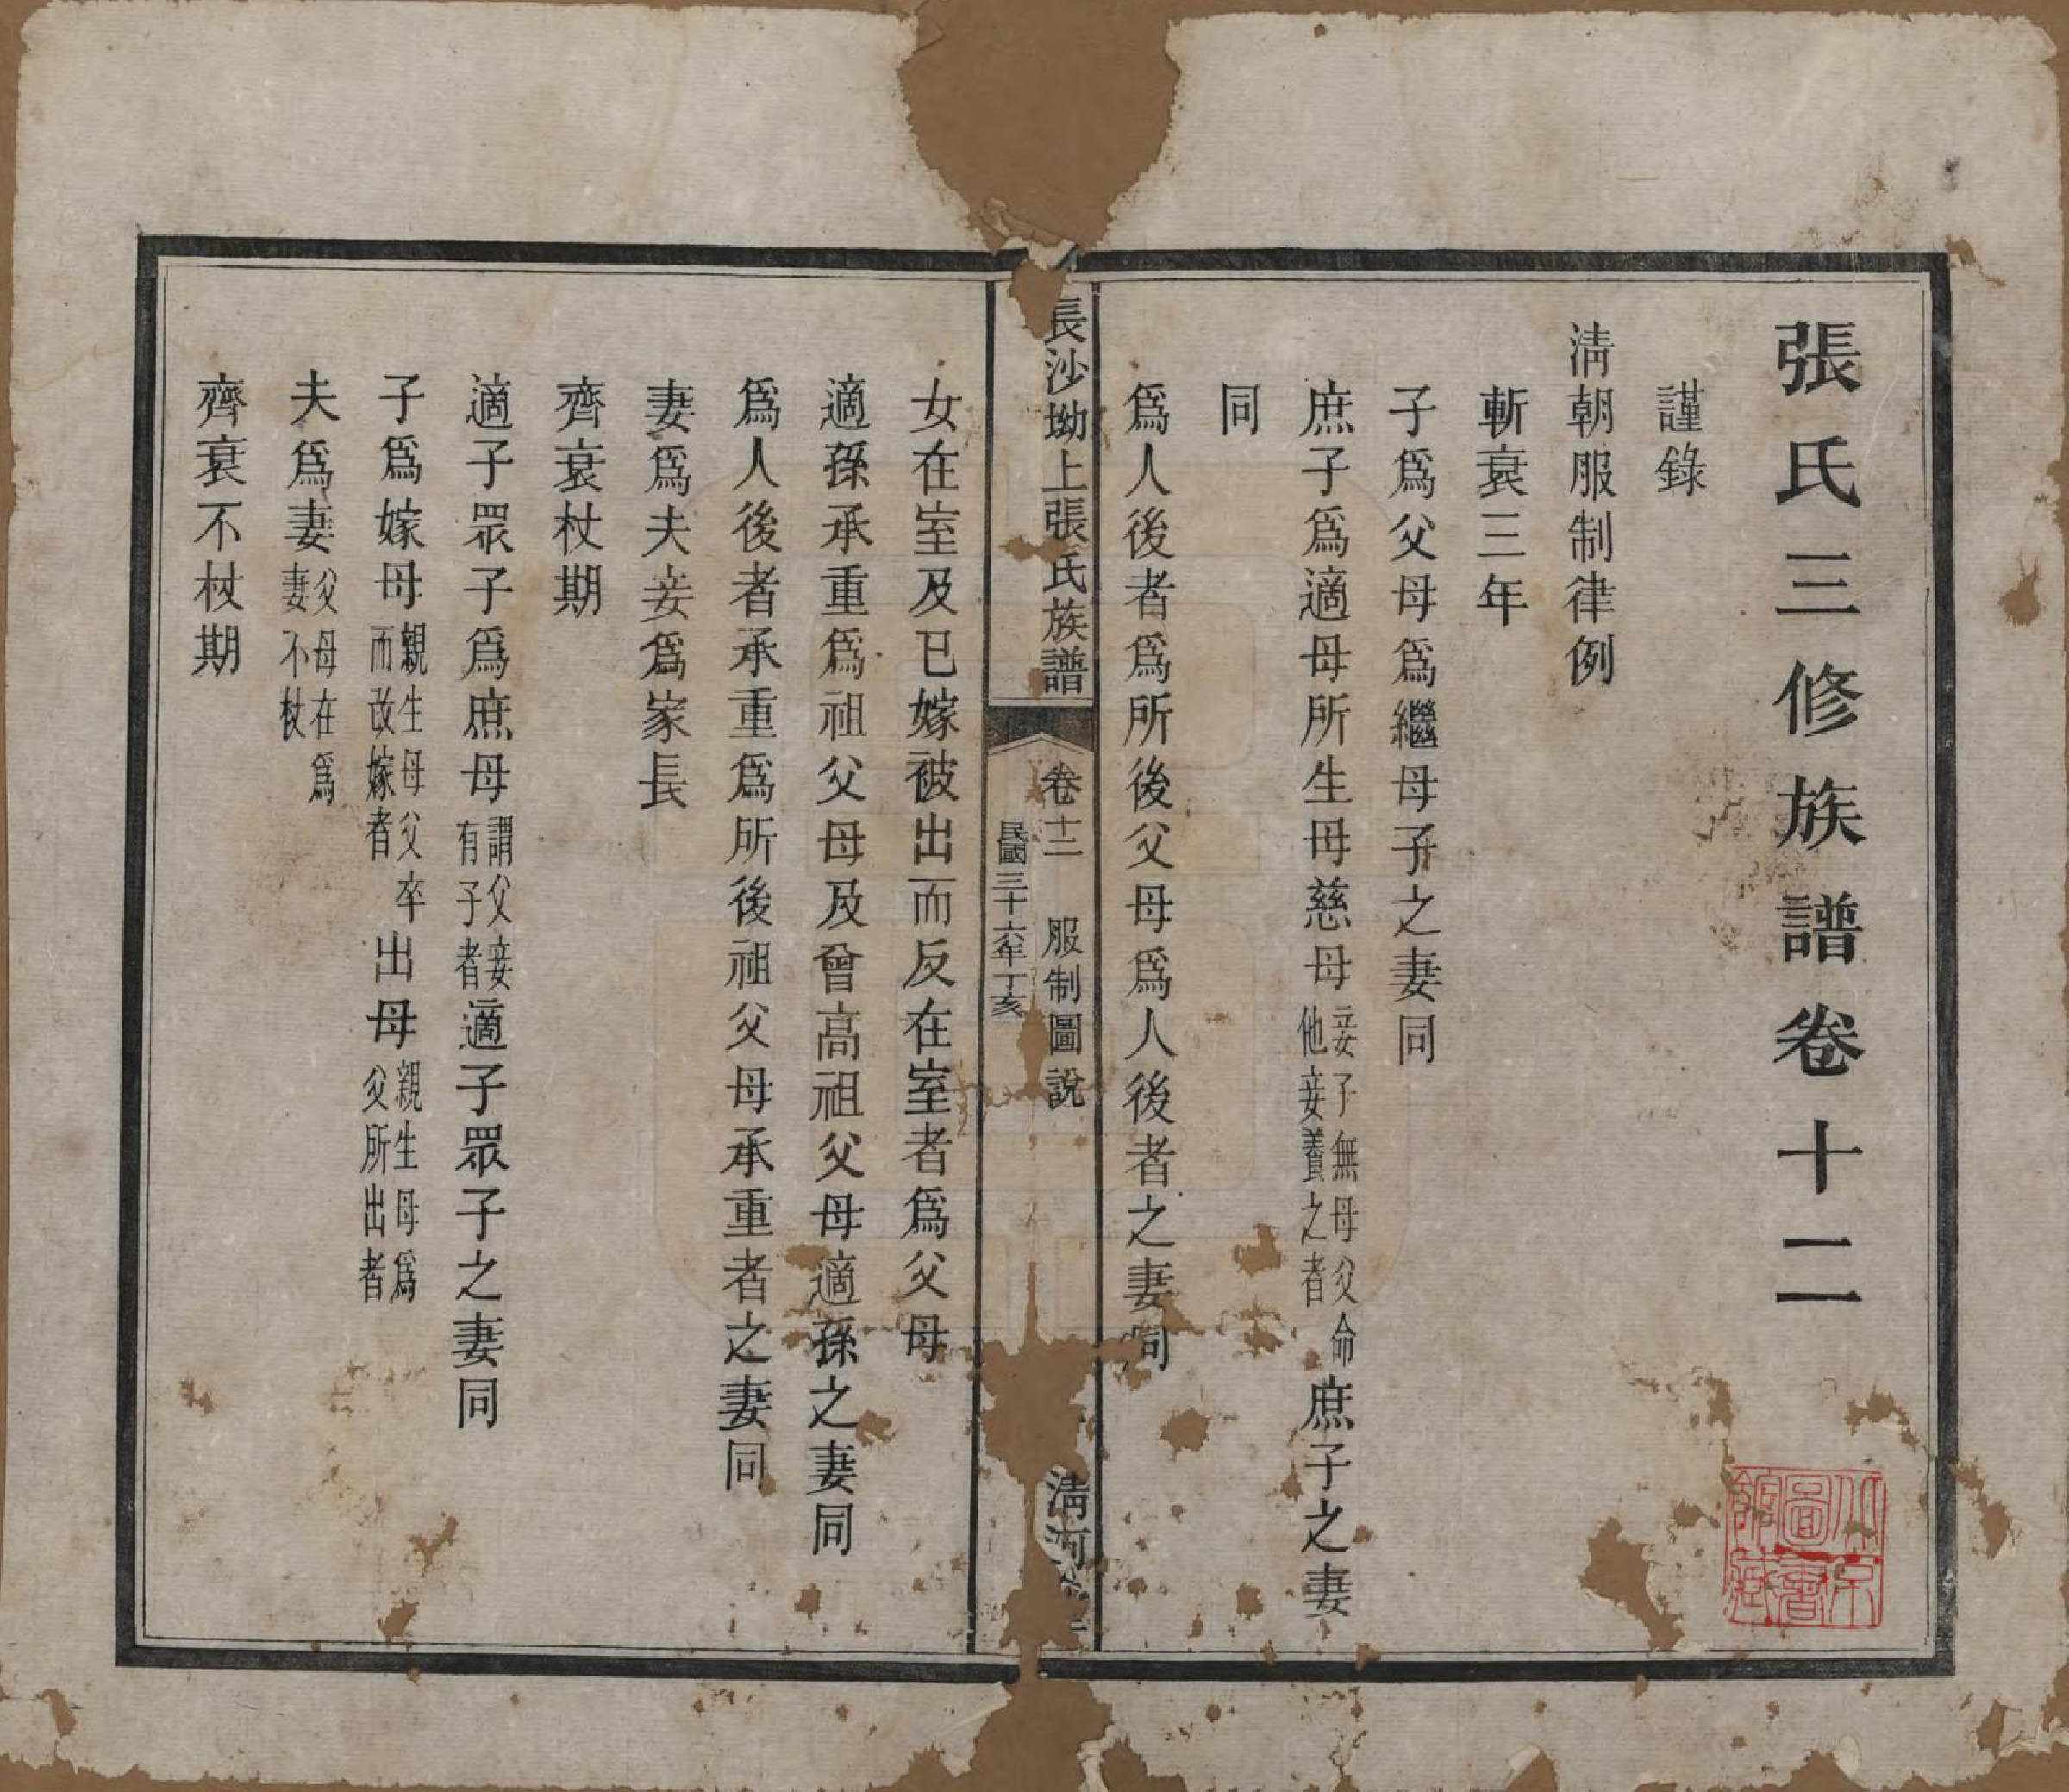 張氏三修族譜卷十二
謹錄
淸朝服制律例
斬衰三年
子爲父母爲繼母子之妻同
庶子爲適母所生母慈母妾子無母父命他妾養之者庶子之妻
同
爲人後者爲所後父母爲人後者之妻同
長沙坳上張氏族譜
卷十二
服制圖說
民國三十六年丁亥
淸河
女在室及已嫁被出而反在室者爲父母
適孫承重爲祖父母及曾高祖父母適孫之妻同
爲人後者承重爲所後祖父母承重者之妻同
妻爲夫妾爲家長
齊衰杖期
適子眾子爲庶母謂父妾有子者適子眾子之妻同
子爲嫁母親生母父卒而改嫁者出母親生母爲父所出者
夫爲妻父母在爲妻不杖
齊衰不杖期
北京圖書館藏